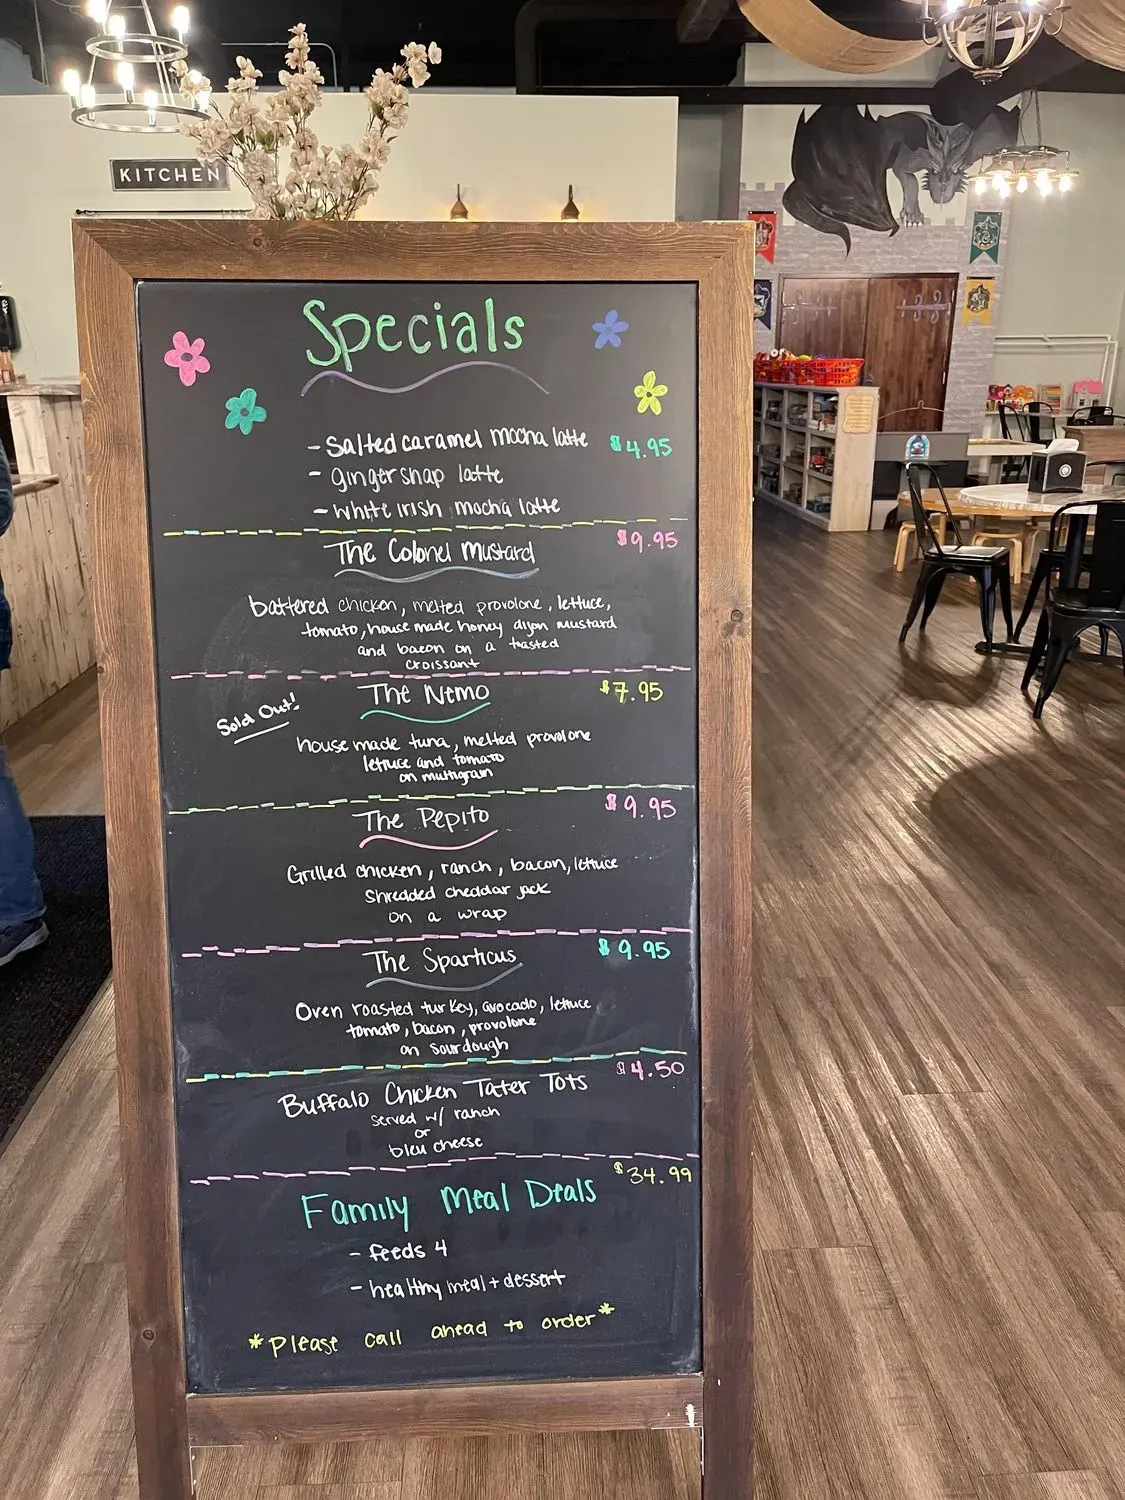 KITCHEN
Specials
- Salted caramel mocha latte $4.95
- gingersnap latte
- white irish mocha latte
The Colonel Mustard $9.95
battered chicken, melted provolone, lettuce,
tomato, house made honey dijon mustard
and bacon on a toasted
croissant
Sold Out!
The Nemo $7.95
house made tuna, melted provolone
lettuce and tomato
on multigrain
The Pepito $9.95
Grilled chicken, ranch, bacon, lettuce
shredded cheddar jack
on a wrap
The Sparticus $9.95
Oven roasted turkey, avocado, lettuce
tomato, bacon, provolone
on sourdough
Buffalo Chicken Tater Tots $4.50
served w/ ranch
or
bleu cheese
$34.99
Family Meal Deals
- feeds 4
- healthy meal + dessert
*Please call ahead to order*